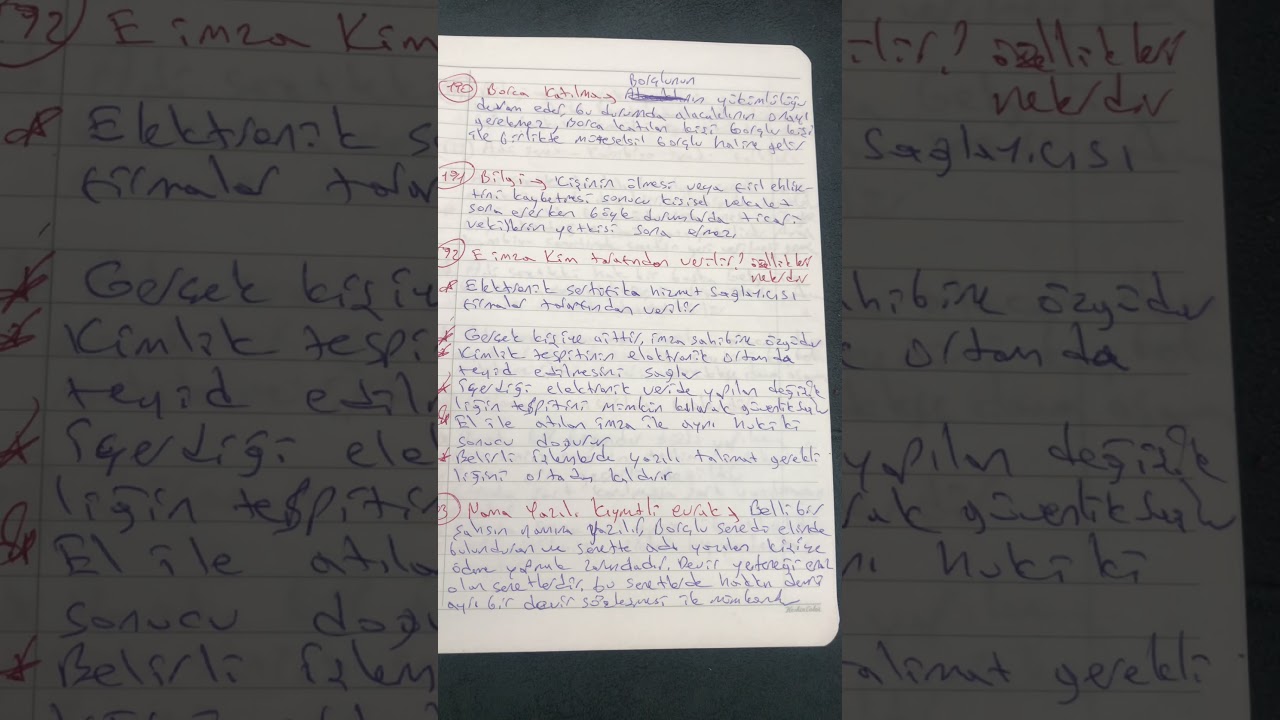 190 Borca Katılma → Borçlunun yükümlülüğü
devam eder, bu durumda alacaklının onayı
gerekmez, Borca katılan kişi borçlu kişi
ile birlikte müteselsil borçlu haline gelir
191 Bilgi → Kişinin ölmesi veya fiil ehliye-
tini kaybetmesi sonucu kişisel vekalet
sona ererken böyle durumlarda ticari
vekillerin yetkisi sona ermez.
92 E imza Kim tarafından verilir? özellikleri
nelerdir
Elektronik sertifika hizmet sağlayıcısı
firmalar tarafından verilir
Gerçek kişiye aittir, imza sahibine özgüdür
Kimlik tespitinin elektronik ortamda
teyid edilmesini sağlar
içerdiği elektronik veride yapılan değişik
liğin tespitini mümkün kılarak güvenlik sağlar
El ile atılan imza ile aynı hukiki
sonucu doğurur
Belirli işlemlerde yazılı talimat gerekli
liğini ortadan kaldırır
3 Nama Yazılı Kıymetli evrak → Belli bir
şahsın namına yazılır, Borçlu senedi elinde
bulunduran ve senette adı yazılan kişiye
ödeme yapmak zorundadır. Devir yeteneği en az
olan senetlerdir, bu senetlerde hakkın devri
ayrı bir devir sözleşmesi ile mümkündür